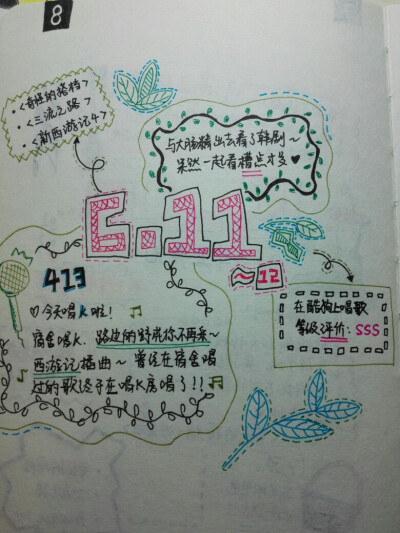 8
·<奇怪的搭档>
·<三流之路>
·<新西游记4>
与大肠猪出去看了韩剧~
果然一起看槽点才多♥
6.11
~12
413
♡今天唱K啦!
宿舍唱K. 路边的野花你不要采~
西游记插曲~ 曾经在宿舍唱
过的歌终于在唱K房唱了!!
在酷狗上唱歌
等级评价: SSS